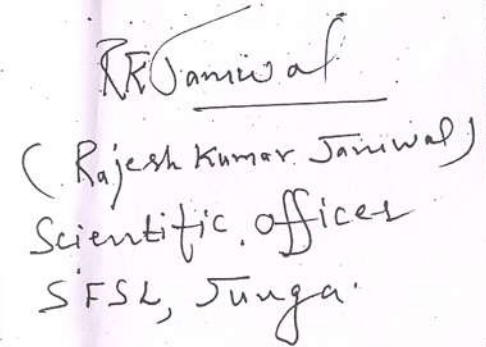 RKJaniwal
(Rajesh Kumar Janiwal)
Scientific officer
SFSL, Junga.